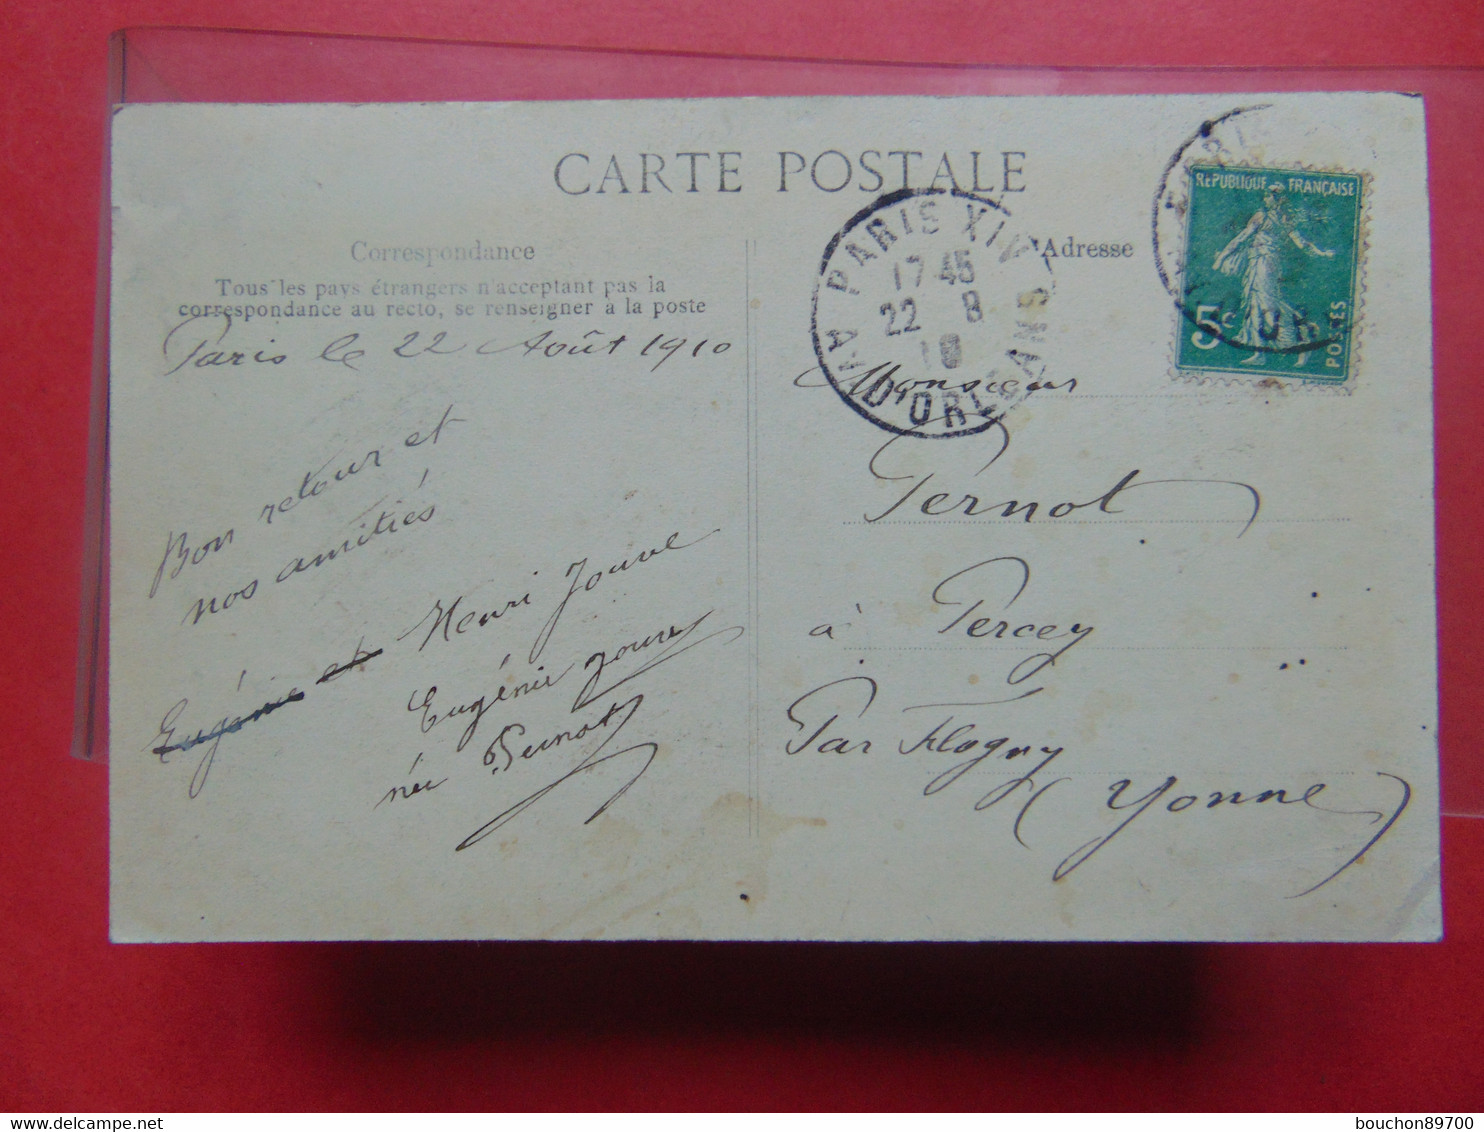 CARTE POSTALE
Correspondance
Tous les pays étrangers n'acceptant pas la
correspondance au recto, se renseigner à la poste
Paris le 22 Août 1910
Bon retour et
nos amitiés
Eugénie et Henri Jouve
Eugénie Jouve
née Pernot
Adresse
PARIS XIV
17 45
22 8
10
AV. D'ORLEANS
REPUBLIQUE FRANÇAISE
5c
POSTES
Monsieur
Pernot
à Percey
Par Flogny
(Yonne)
bouchon89700